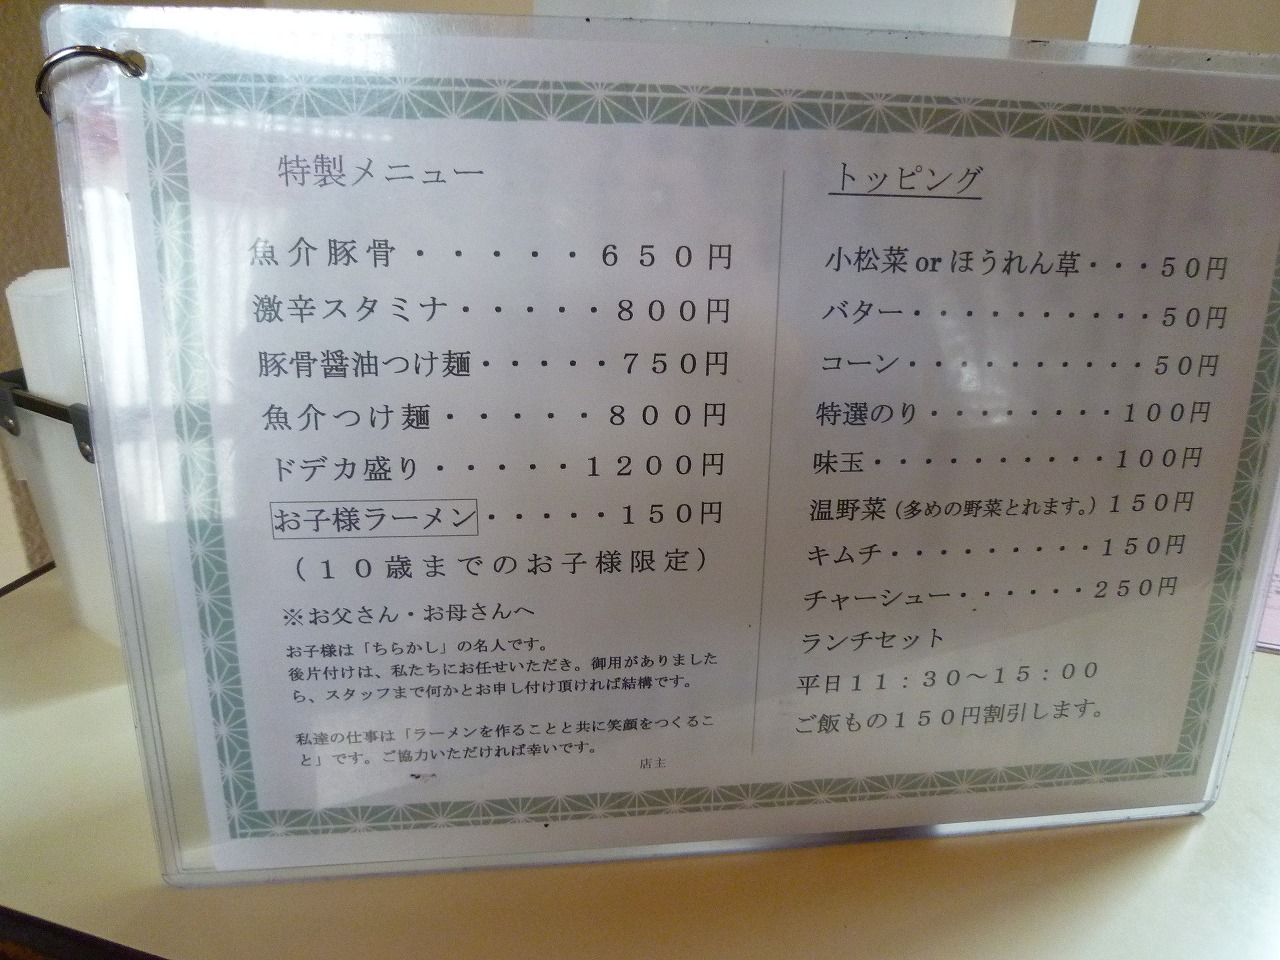 特製メニュー
魚介豚骨・・・・・・６５０円
激辛スタミナ・・・・・８００円
豚骨醤油つけ麺・・・・・７５０円
魚介つけ麺・・・・・８００円
ドデカ盛り・・・・・１２００円
お子様ラーメン・・・・・１５０円
（１０歳までのお子様限定）
※お父さん・お母さんへ
お子様は「ちらかし」の名人です。
後片付けは、私たちにお任せいただき。御用がありました
ら、スタッフまで何かとお申し付け頂ければ結構です。
私達の仕事は「ラーメンを作ることと共に笑顔をつくるこ
と」です。ご協力いただければ幸いです。
店主
トッピング
小松菜 or ほうれん草・・・５０円
バター・・・・・・・・・・５０円
コーン・・・・・・・・・・５０円
特選のり・・・・・・・・１００円
味玉・・・・・・・・・・１００円
温野菜（多めの野菜とれます。）１５０円
キムチ・・・・・・・・・１５０円
チャーシュー・・・・・・２５０円
ランチセット
平日１１：３０～１５：００
ご飯もの１５０円割引します。